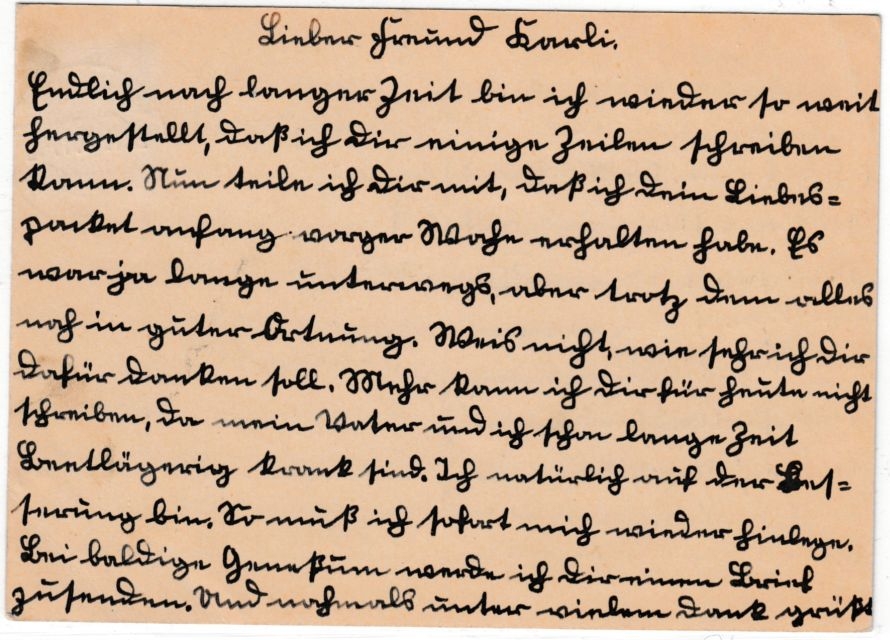 Lieber Freund Karli.
Endlich nach langer Zeit bin ich wieder so weit
hergestellt, daß ich Dir einige Zeilen schreiben
kann. Nun teile ich Dir mit, daß ich dein Liebes=
packet anfang vorger Wohe erhalten habe. Es
war ja lange unterwegs, aber trotz dem alles
noh in guter Ortnung. Weis nicht, wie sehr ich Dir
dafür danken soll. Mehr kann ich Dir für heute nicht
schreiben, da mein Vater und ich schon lange Zeit
Beetlägerig krank sind. Ich natürlich auf der Bes=
serung bin. So muß ich sofort mich wieder hinlege.
Bei baldige Geneßum werde ich Dir einen Brief
zusenden. Und nochmals unter vielem dank grüßt